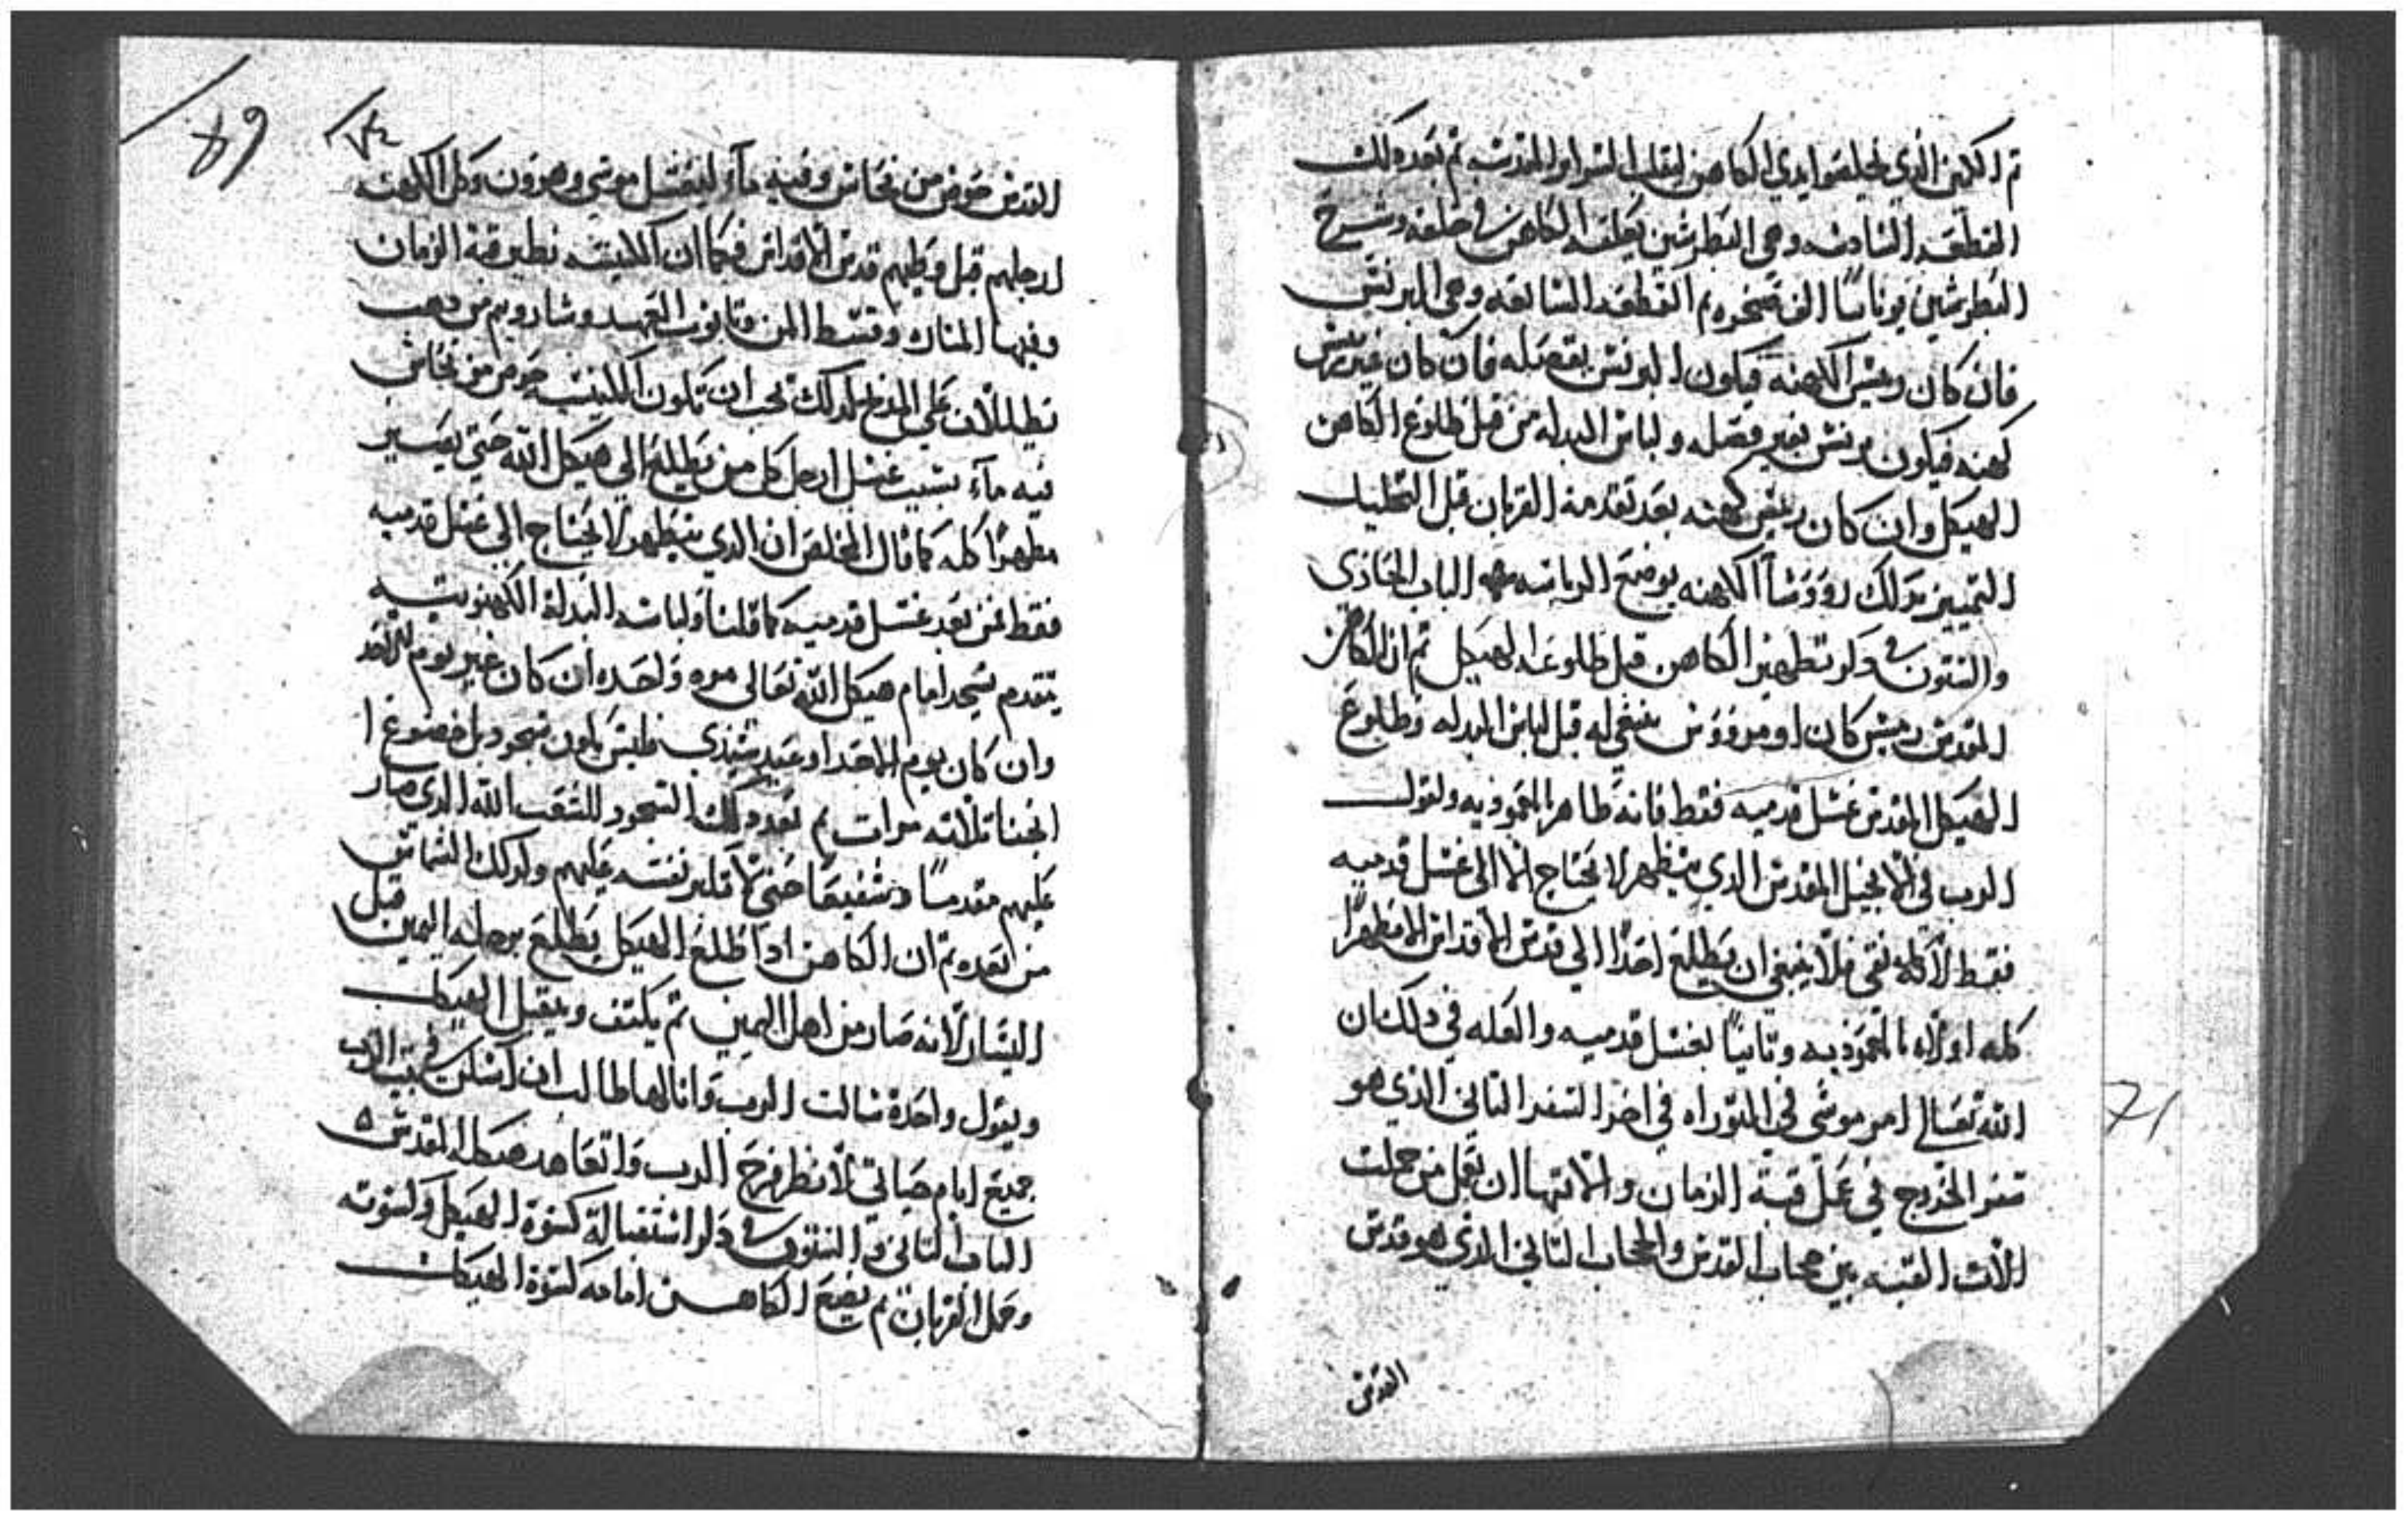 ثم الكمين الذي يحلصوا ايدي الكاهن لتقليب السراير المقدسه ثم بعد ذلك
القطعه السادسه وهي البطرشين يعلقه الكاهن في حلقه وشرح
البطرشين يونانيا الف صخره ثم القطعه السابعه وهي البرنس
فان كان رييس الكهنه فيكون البرنس بقصله فان كان غير رييس
كهنه فيكون برنس بغير قصله ولباس البدله من قبل طلوع الكاهن
الهيكل وان كان رييس كهنه بعد تقدمة القربان قبل التحليل
التمييز بذلك روؤسا الكهنه بوضع الرياسه الباب الحادي
والستون في ذكر تطهير الكاهن قبل طلوعه الهيكل ثم ان الكاهن
المقدس رييس كان او مروؤس ينبغي له قبل لباس البدله وطلوع
الهيكل المقدس غسل قدميه فقط فانه طاهر بالمعموديه ولقول
الرب في الانجيل المقدس الذي يتطهر لا يحتاج الا الى غسل قدميه
فقط لان كله نقي فلا ينبغي ان يطلع احدا الي قدس الاقداس الا مطهرا
كله اولا بالمعموديه وثانيا بغسل قدميه والعله في ذلك ان
الله تعالي امر موسي في التوراه في اخر السفر الثاني الذي هو
سفر الخروج في عمل قبة الزمان والاتها ان تعمل من جملت
الات القبه بين حجاب القدس والحجاب الثاني الذي هو قدس
القدس
القدس حوض من نحاس وفيه مآء ليغتسل موسي وهرون وكل الكهنه
ارجلهم قبل وطيهم قدس الاقداس فكما ان الكنيسه نظير قبة الزمان
وفيها المناره وقسط المن وتابوت العهد وشاروبيم من دهب
تظلل الان علي المذبح لدلك يجب ان تكون الكنيسه حوض من نحاس
فيه مآء بسبب غسل ارجل كل من يطلع الي هيكل الله حتي يصير
مطهرا كله كما قال المخلص ان الذي يتطهر لا يحتاج الي غسل قدميه
فقط فمن بعد غسل قدميه كما قلنا ولباسه البدلة الكهنوتيه
يتقدم يسجد امام هيكل الله تعالى مره واحده ان كان غير يوم الاحد
وان كان يوم الاحد او عيد سيدي فليس يكون سجود بل خضوع ا
انحنا ثلاثه مرات ثم بعد ذلك السجود للشعب الله الذي صار
عليهم مقدما وشفيعا حتي لا تكبر نفسه عليهم وكدلك الشماس
من بعده ثم ان الكاهن اذا طلع الهيكل يطلع برجله اليمين قبل
اليسار لانه صار من اهل اليمين ثم يكشف ويقبل الهيكل
ويقول واحدة سالت الرب وانا لها طالب ان اسكن في بيت الرب
جميع ايام حياتي لانظر فرح الرب واتعاهد هيكله المقدس ه
الباب الثاني والستون في ذكر استقبالة كسوة الهيكل وكسوته
وحمل القربان ثم يضع الكاهن امامه كسوة الهيكل